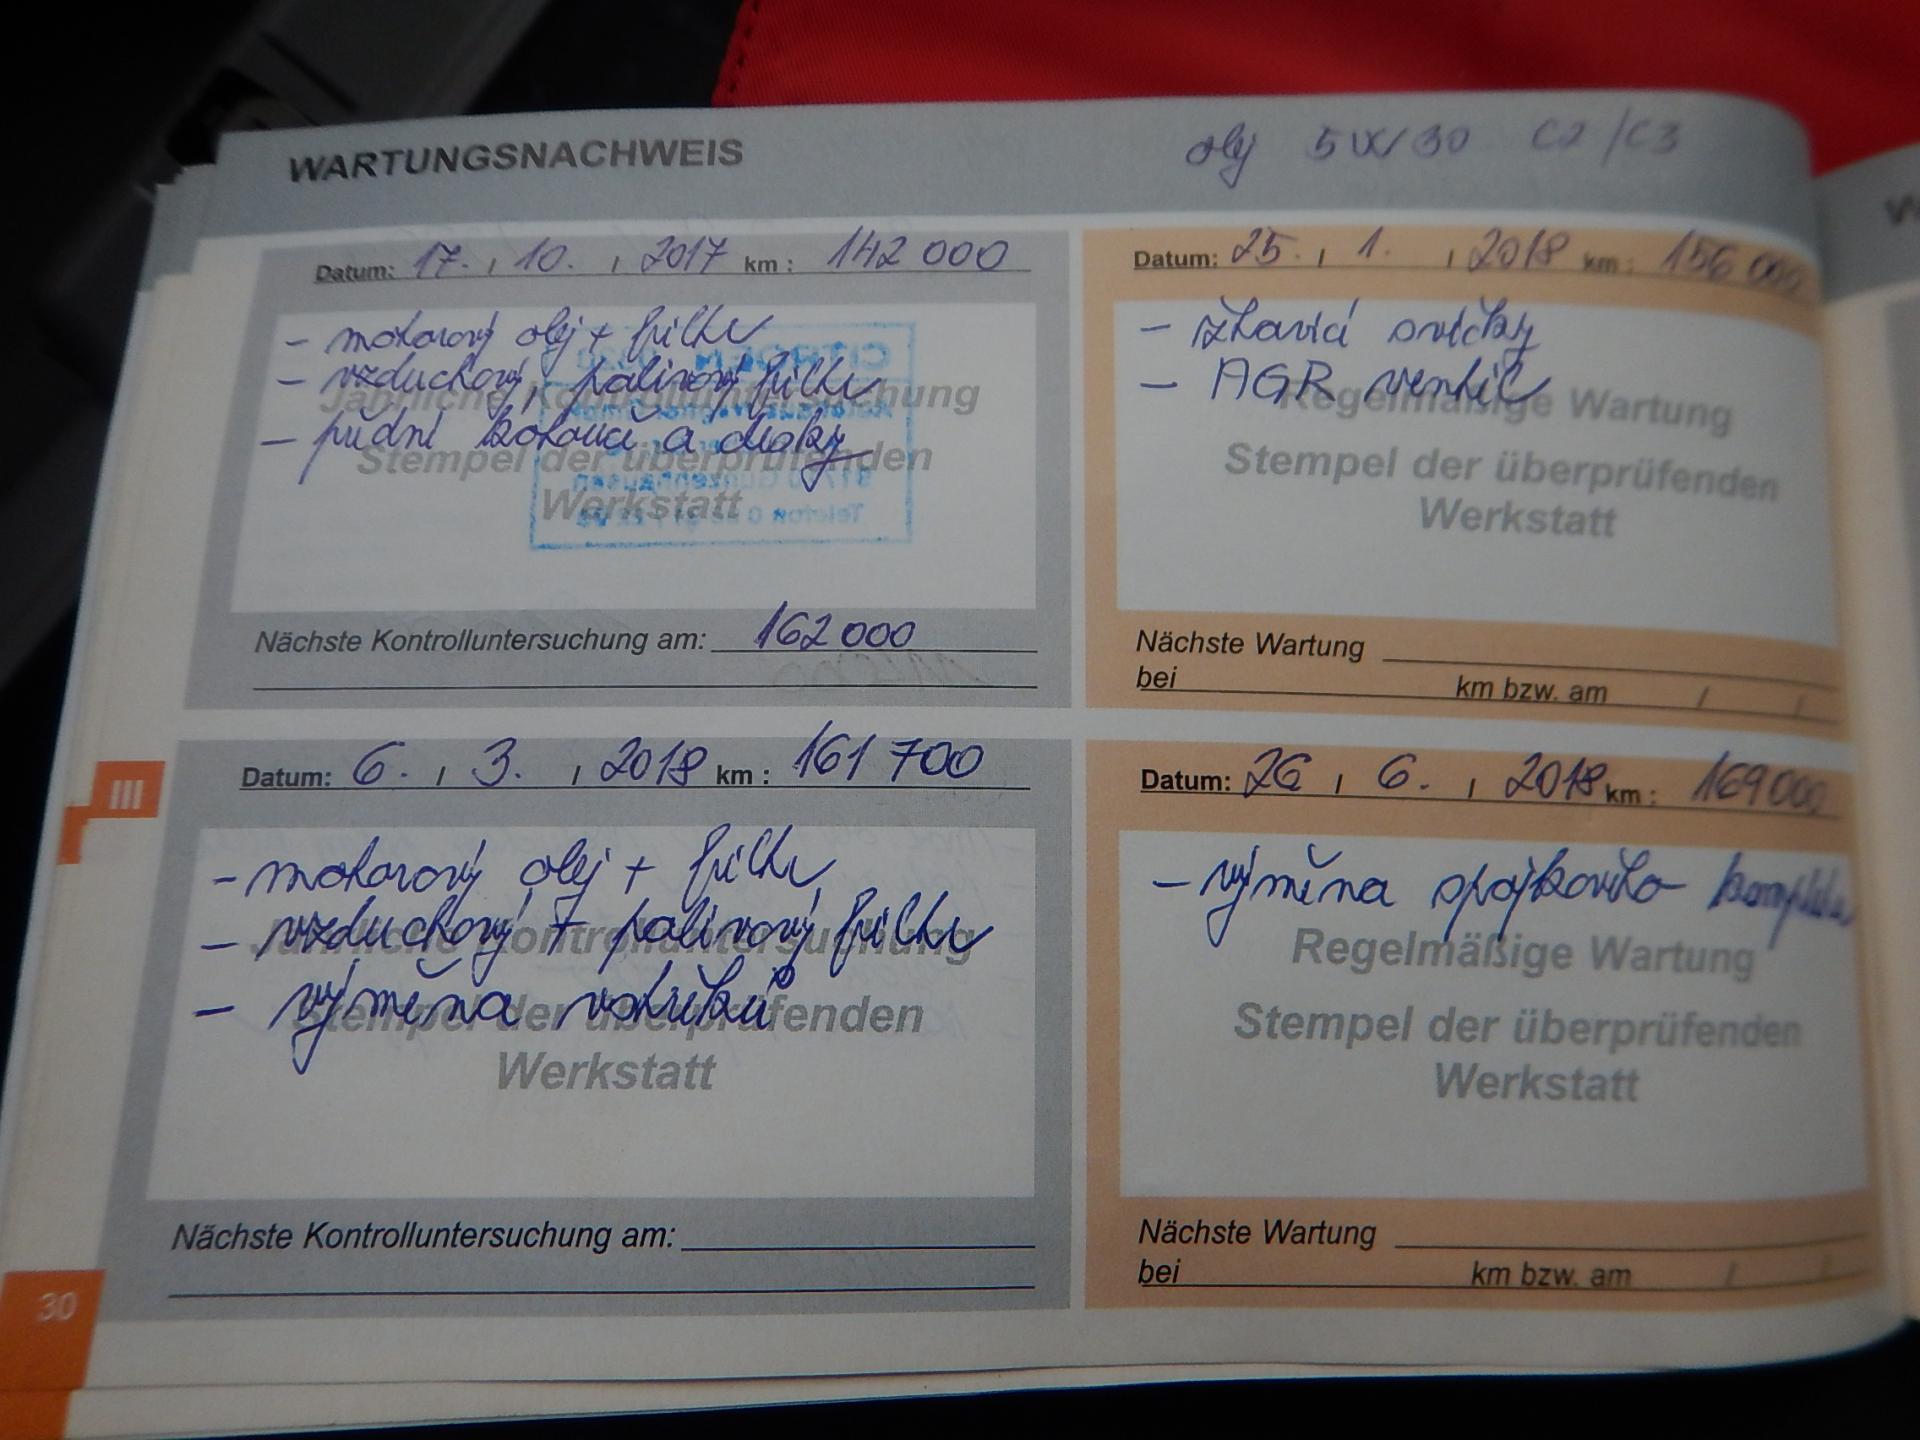 WARTUNGSNACHWEIS
olej 5W/30 C2/C3
Datum: 17. / 10. / 2017 km: 142 000
- motorový olej + filtr
- vzduchový, palivový filtr
- přední kotouče a desky
Jährliche Kontrolluntersuchung
Stempel der überprüfenden
Werkstatt
CITROEN
Nächste Kontrolluntersuchung am: 162 000
Datum: 25. / 1. / 2018 km: 156 000
- žhavící svíčky
- AGR ventil
Regelmäßige Wartung
Stempel der überprüfenden
Werkstatt
Nächste Wartung
bei km bzw. am / /
III
Datum: 6. / 3. / 2018 km: 161 700
- motorový olej + filtr
- vzduchový + palivový filtr
- výměna vstřiků
Jährliche Kontrolluntersuchung
Stempel der überprüfenden
Werkstatt
Nächste Kontrolluntersuchung am:
Datum: 26 / 6. / 2018 km: 169 000
- výměna spojkového
Regelmäßige Wartung
Stempel der überprüfenden
Werkstatt
Nächste Wartung
bei km bzw. am / /
30